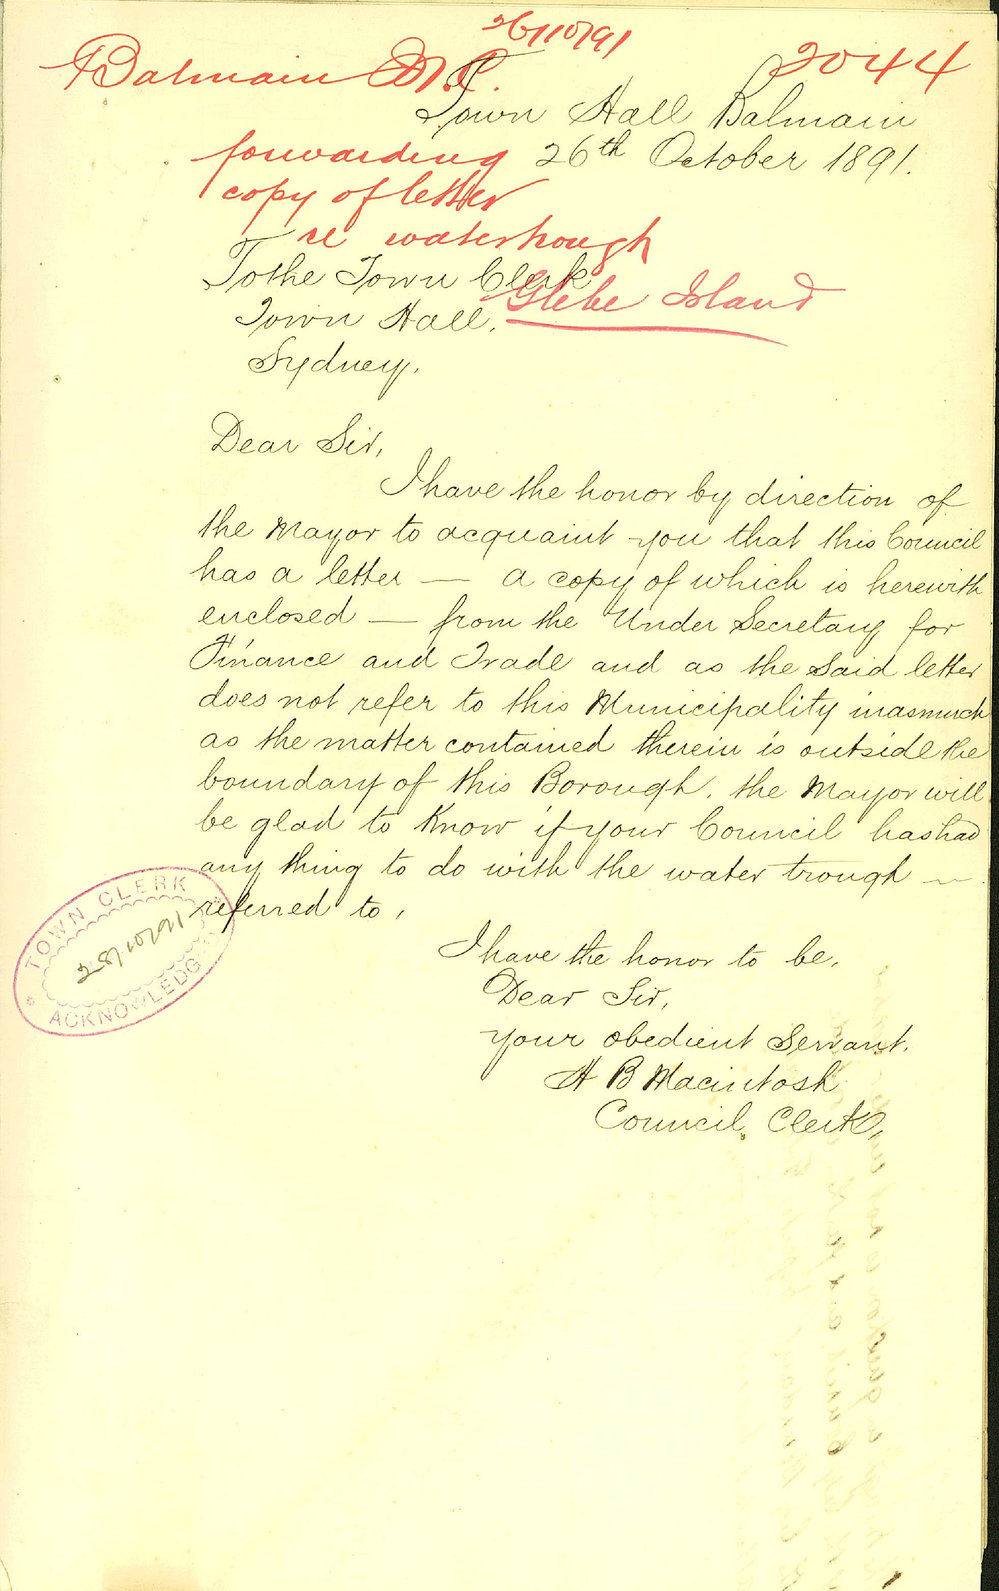 26/10/91
Balmain M.C. 2044
Town Hall Balmain
forwarding 26th October 1891.
copy of letter
re waterhough
To the Town Clerk
Glebe Island
Town Hall,
Sydney.
Dear Sir,
I have the honor by direction of
the Mayor to acquaint you that this Council
has a letter — a copy of which is herewith
enclosed — from the Under Secretary for
Finance and Trade and as the said letter
does not refer to this Municipality inasmuch
as the matter contained therein is outside the
boundary of this Borough, the Mayor will
be glad to know if your Council has had
any thing to do with the water trough —
referred to,
TOWN CLERK
28/10/91
ACKNOWLEDG
I have the honor to be,
Dear Sir,
your obedient Servant.
A B Macintosh
Council Clerk,